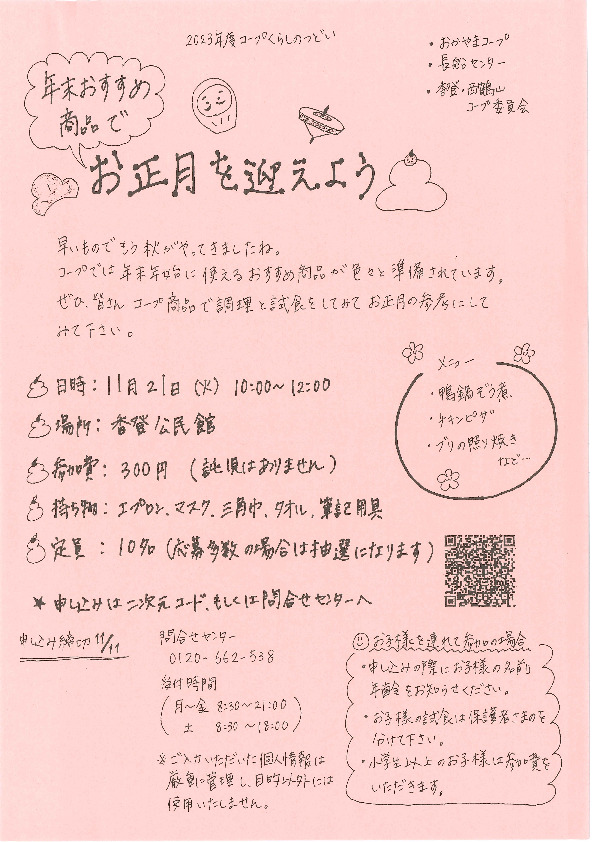 2023年度コープくらしのつどい
・おかやまコープ
・長船センター
・香登・西鶴山
コープ委員会
年末おすすめ
商品で
お正月を迎えよう
早いものでもう秋がやってきましたね。
コープでは年末年始に使えるおすすめ商品が色々と準備されています。
ぜひ、皆さんコープ商品で調理と試食をしてみてお正月の参考にして
みて下さい。
日時：11月21日（火）10:00～12:00
場所：香登公民館
参加費：300円（託児はありません）
持ち物：エプロン、マスク、三角巾、タオル、筆記用具
定員：10名（応募多数の場合は抽選になります）
メニュー
・鴨鍋ぞう煮
・チキンピザ
・ブリの照り焼き
など…
★申し込みは二次元コード、もしくは問合せセンターへ
申し込み締切11/11
問合せセンター
0120-662-538
受付時間
（月～金 8:30～21:00
土 8:30～18:00）
※ご入力いただいた個人情報は
厳重に管理し、目的以外には
使用いたしません。
お子様を連れて参加の場合
・申し込みの際にお子様の名前
年齢をお知らせください。
・お子様の試食は保護者さまのを
分けて下さい。
・小学生以上のお子様は参加費を
いただきます。